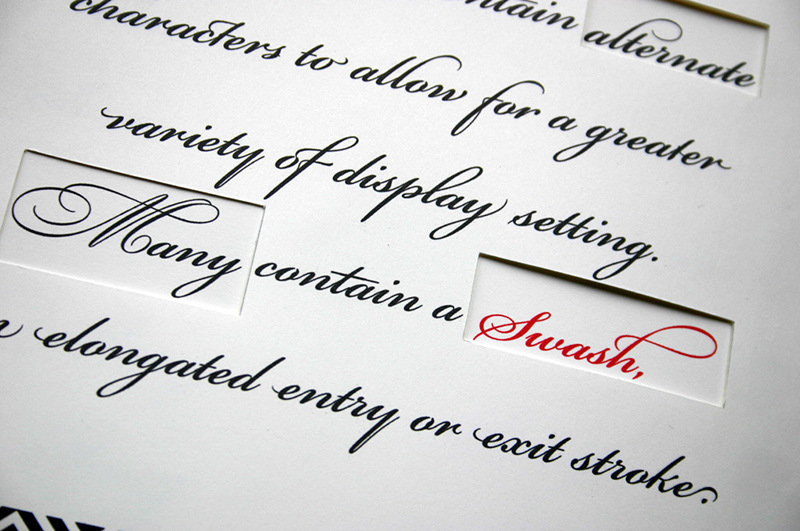 alternate
characters to allow for a greater
variety of display setting.
Many contain a Swash,
elongated entry or exit stroke.